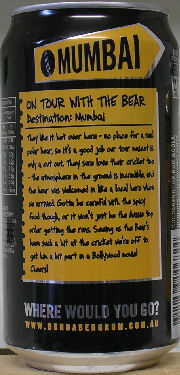 MUMBAI
ON TOUR WITH THE BEAR
Destination: Mumbai
They like it hot over here - no place for a real
polar bear, so it's a good job our tour mascot is
only a cut out. They sure love their cricket too
- the atmosphere in the ground is incredible, and
the bear was welcomed in like a local hero when
we arrived. Gotta be careful with the spicy
food though, or it won't just be the Aussie top
order getting the runs. Seeing as the Bear's
been such a hit at the cricket we're off to
get him a bit part in a Bollywood movie!
Cheers!
WHERE WOULD YOU GO?
WWW.BUNDABERGRUM.COM.AU